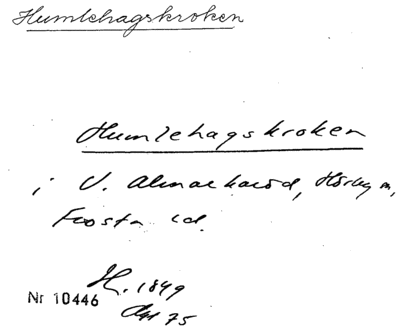 Humlehagskroken
Humlehagskroken
i V. Almarharöd, Hörby sn,
Frosta hd.
H. 1849
Nr 10446
75